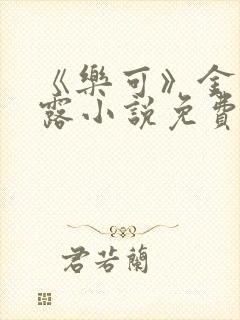 《樂可》金
露小說免費
君若蘭